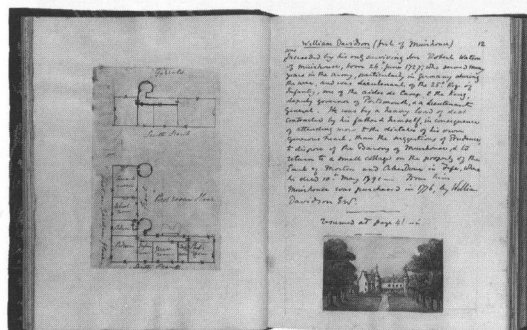 South Front
Bed room floor
South Front
William Davidson (first of Muirhouse) 12
was
succeeded by his only surviving son Robert Watson
of Muirhouse, born 26 June 1727, who served many
years in the army, particularly in Germany during
the war, and was Lieutenant of the 25th Reg. of
Infantry, one of the aides de Camp to the King,
deputy governor of Portsmouth, a Lieutenant
General. He was by a heavy load of debt
contracted by his father & himself, in consequence
of attending more to the dictates of his own
generous heart, than the suggestions of Prudence,
to dispose of the Barony of Muirhouse, & to
return to a small cottage on the property of the
Earl of Morton and Aberdour in Fife, where
he died 10th May 1791 — From him
Muirhouse was purchased in 1776, by William
Davidson Esqr.
resumed at page 41